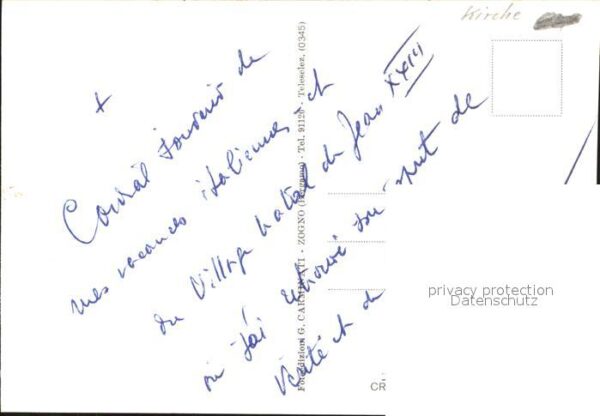 Kirche
+
Cordial souvenir de
mes vacances italiennes et
du Village natal de Jean XXIII
où j'ai
de
et
Fotoedizioni G. CARMINATI - ZOGNO (Bergamo) - Tel. 91126 - Teleselez. (0345)
privacy protection
Datenschutz
CR